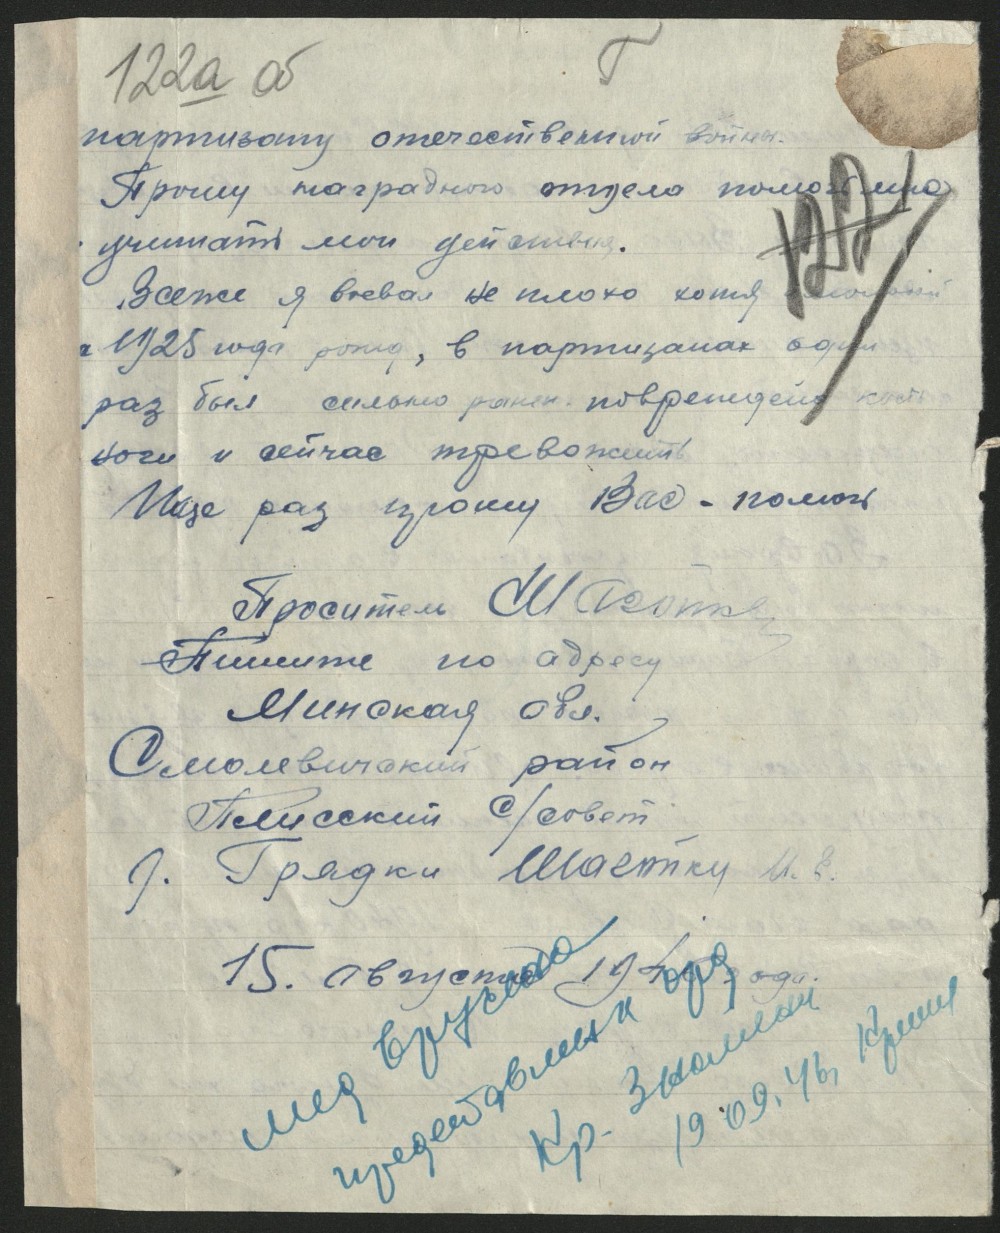 122а об Г
партизану отечественной войны.
Прошу наградного отдела помоч мне
учитать мои действия.
Всеже я воевал не плохо хотя молодой
1925 года рожд, в партизанах один
раз был сильно ранен. повреждена кость
ноги и сейчас тревожить
Ище раз прошу Вас - помоч
Проситель
Пишите по адресу
Минская обл.
Смолевичский район
Плисский с/совет
д. Грядки Шаетку И. Е.
15. августа 194 года.
мед вручена
представлен к орд
Кр. Знамени
19.09.46,